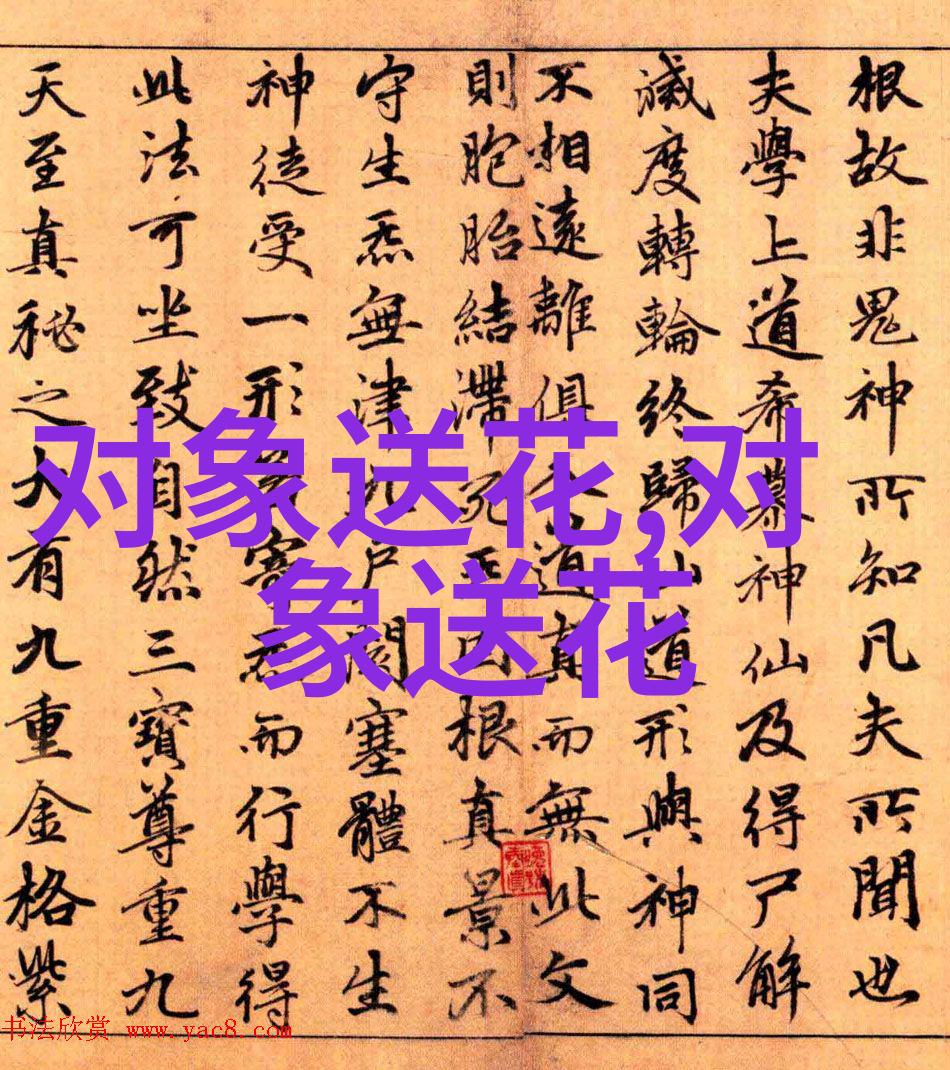 根故非鬼神所知凡夫所聞也
夫學上道希慕神仙及得尸解
滅度轉輪終歸仙道形與神同
不相遠離俱入道真而無此文
則胞胎結滯死炁固根真景不
守生炁無津九戶閡塞體不生
神徒受一形若寄炁而行學得
此法可坐致自然三寶尊重九
天至真秘之大有九重金格紫
对象送花,对
象送花
书法欣赏 www.yac8.com